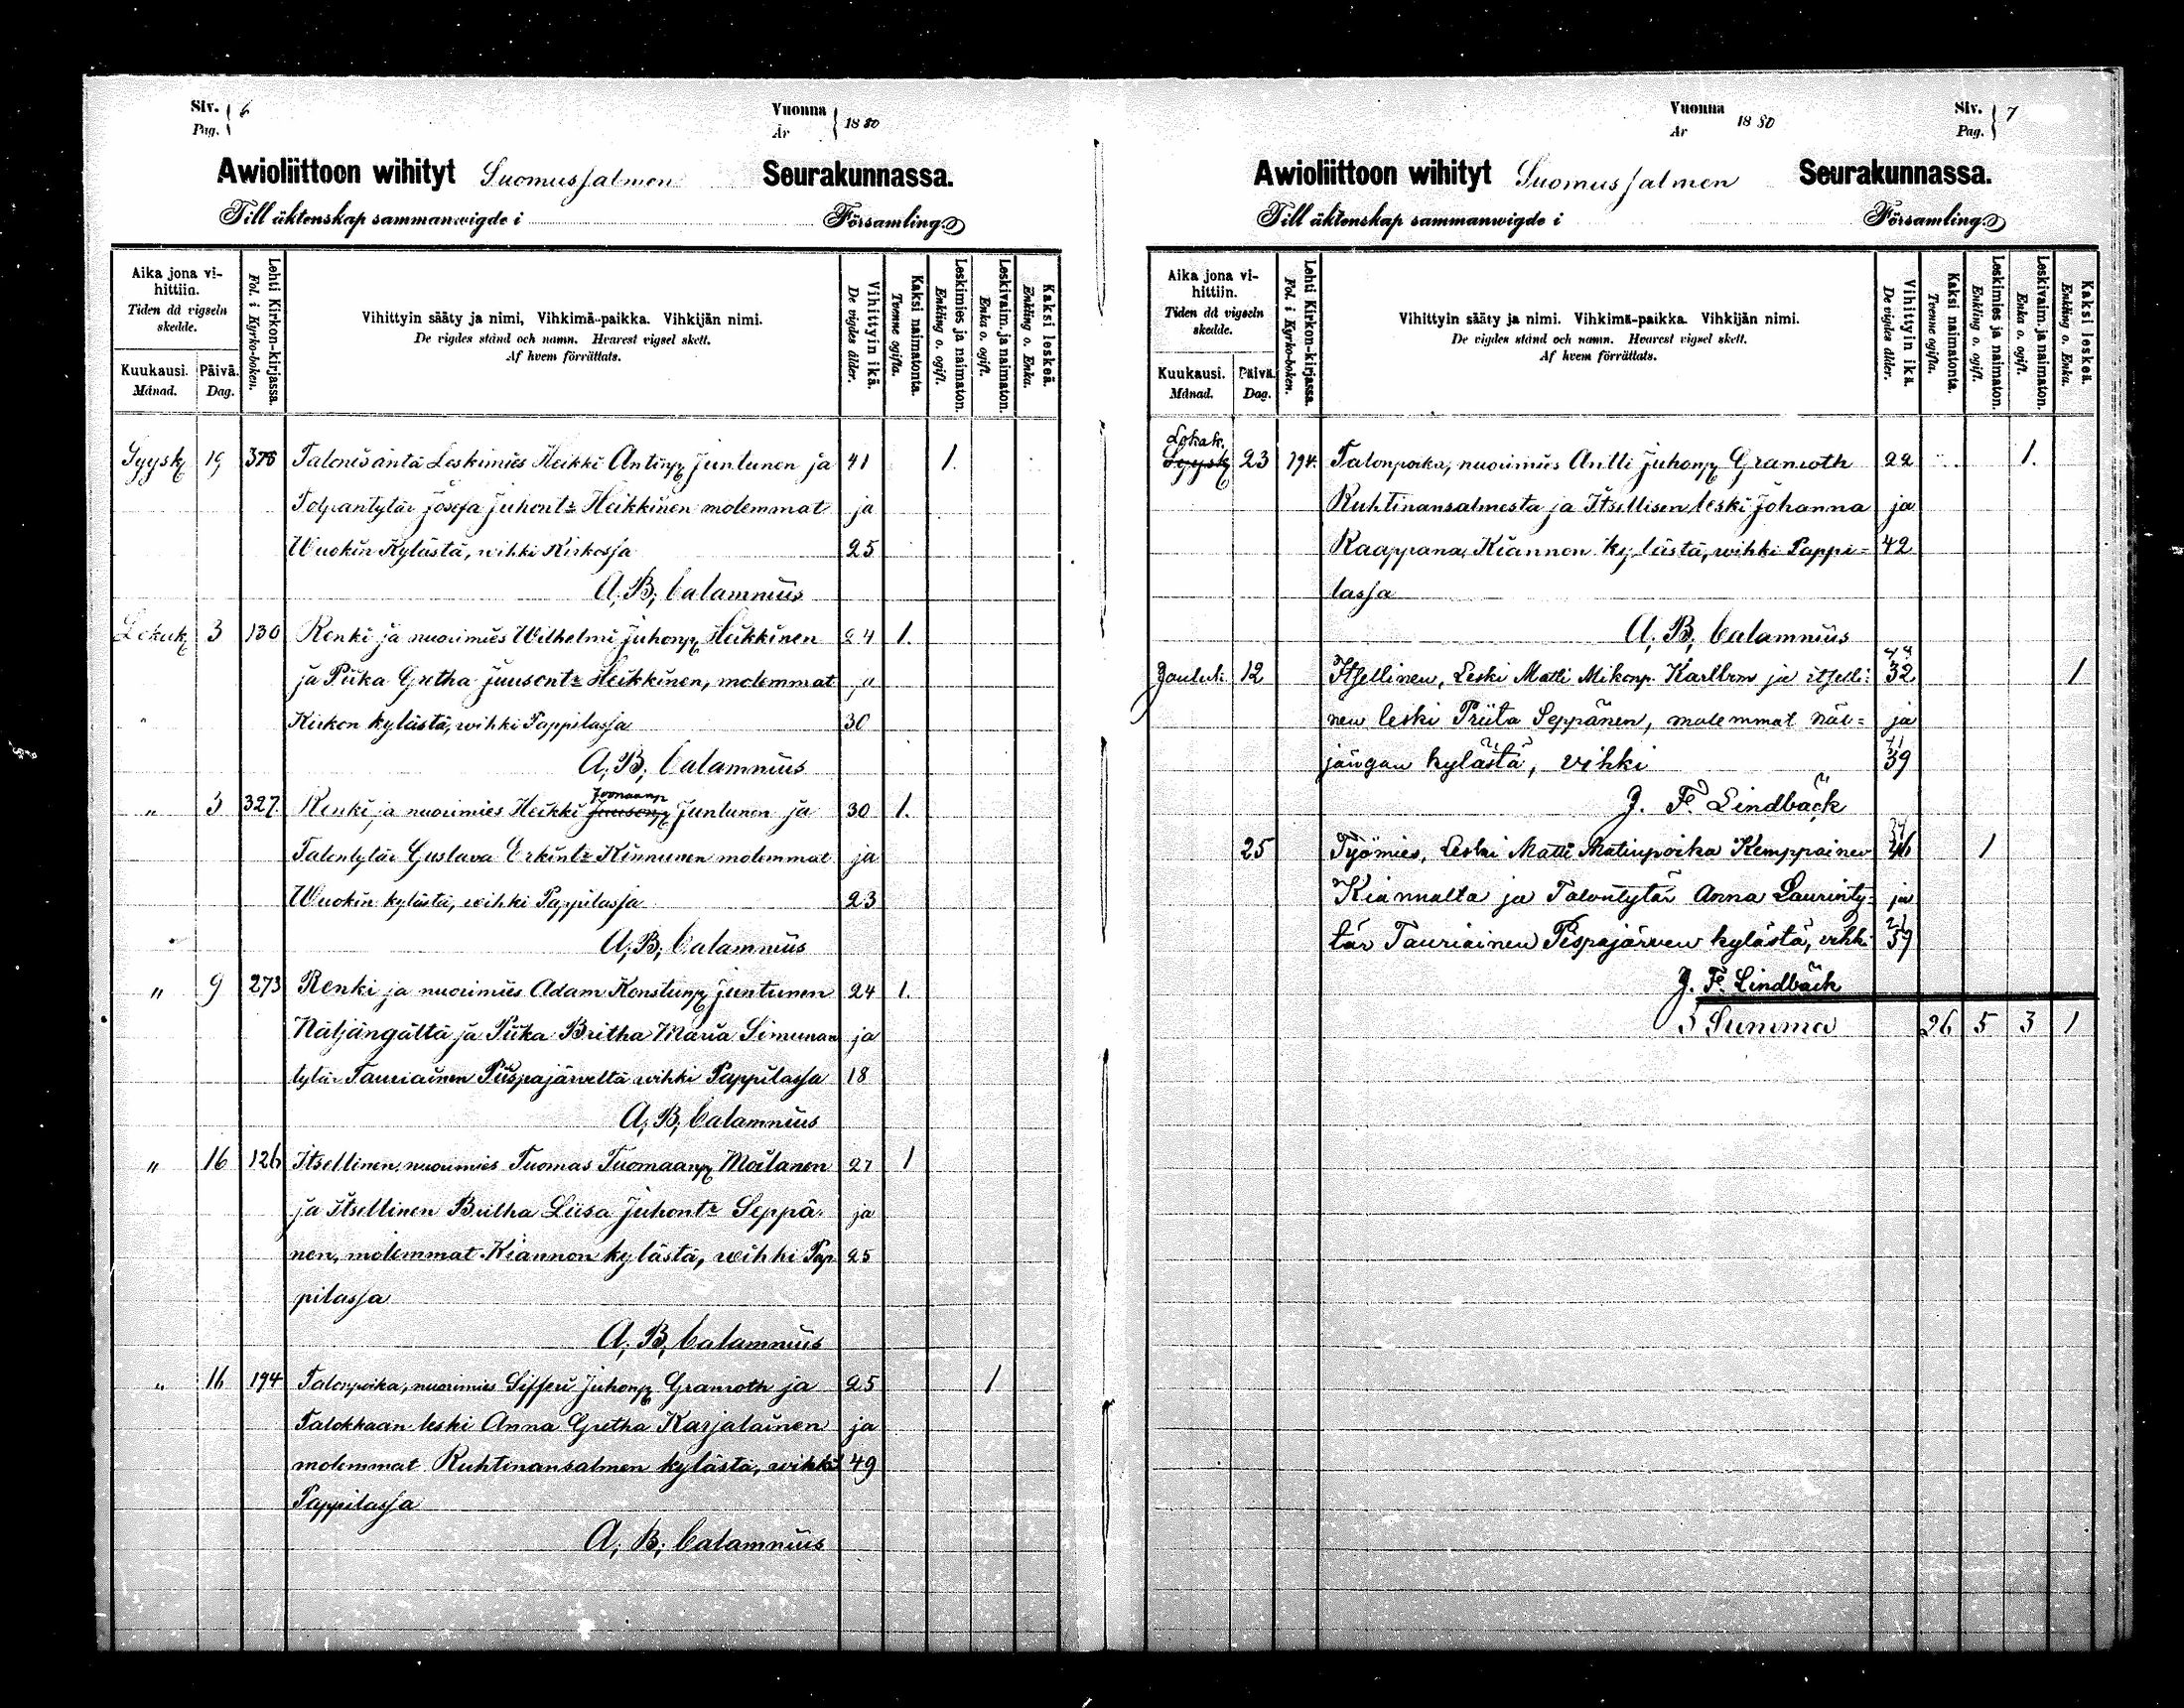 Siv. 6
Pag.
Vuonna 1880
År
Awioliittoon wihityt Suomussalmen Seurakunnassa.
Till äktenskap sammanwigde i Församling.
Aika jona vihittiin.
Tiden då vigseln skedde.
Kuukausi. Månad.
Päivä. Dag.
Lehti Kirkon-kirjassa. Fol. i Kyrko-boken.
Vihittyin sääty ja nimi, Vihkimä-paikka. Vihkijän nimi.
De vigdes stånd och namn. Hvarest vigsel skett.
Af hvem förrättats.
Vihittyin ikä. De vigdes ålder.
Kaksi naimatonta. Tvenne ogifta.
Leskimies ja naimaton. Enkling o. ogift.
Leskivaim. ja naimaton. Enka o. ogift.
Kaksi leskeä. Enkling o. Enka.
Syysk 19 378 Talonisäntä Leskimies Heikki Antinp Juntunen ja 41 1.
Josefa Juhont: Heikkinen molemmat ja
Wuokin Kylästä, wihki Kirkossa 25
A. B. Calamnius
Lokak 3 130 Renki ja nuorimies Wilhelmi Juhonp Heikkinen 24 1.
ja Piika Gretha Juusont: Heikkinen, molemmat ja
Kirkon kylästä, wihki Pappilassa 30
A. B. Calamnius
" 3 327 Renki ja nuorimies Heikki Juusonp Joonaanp Juntunen ja 30 1.
Talontytär Gustava Erkint: Kinnunen molemmat ja
Wuokin kylästä, wihki Pappilassa 23
A. B. Calamnius
" 9 273 Renki ja nuorimies Adam Konstunp Juntunen 24 1.
Näljängältä ja Piika Britha Maria Simunan ja
tytär Tauriainen Piispajärveltä wihki Pappilassa 18
A. B. Calamnius
" 16 126 Itsellinen, nuorimies Tuomas Tuomaanp Moilanen 27 1
ja Itsellinen Britha Liisa Juhont: Seppä- ja
nen, molemmat Kiannon kylästä, wihki Pap 25
pilassa
A. B. Calamnius
" 16 194 Talonpoika, nuorimies Sifferi Juhonp Granroth ja 25 1
Talokkaan leski Anna Gretha Karjalainen ja
molemmat Ruhtinansalmen kylästä, wihki 49
Pappilassa
A. B. Calamnius
Vuonna 1880
År
Siv. 7
Pag.
Awioliittoon wihityt Suomussalmen Seurakunnassa.
Till äktenskap sammanwigde i Församling.
Aika jona vihittiin.
Tiden då vigseln skedde.
Kuukausi. Månad.
Päivä. Dag.
Lehti Kirkon-kirjassa. Fol. i Kyrko-boken.
Vihittyin sääty ja nimi. Vihkimä-paikka. Vihkijän nimi.
De vigdes stånd och namn. Hvarest vigsel skett.
Af hvem förrättats.
Vihittyin ikä. De vigdes ålder.
Kaksi naimatonta. Tvenne ogifta.
Leskimies ja naimaton. Enkling o. ogift.
Leskivaim. ja naimaton. Enka o. ogift.
Kaksi leskeä. Enkling o. Enka.
Lokak.
Syysk 23 194. Talonpoika, nuorimies Antti Juhonp Granroth 22 1.
Ruhtinansalmesta ja Itsellisen leski Johanna ja
Kaappana, Kiannon kylästä, wihki Pappi= 42
lassa
A. B. Calamnius
Jouluk. 12 Itsellinen, Leski Matti Mikonp. Karlbom ja itselli= 32 1
nen leski Priita Seppänen, molemmat Näl= ja
jängan kylästä, vihki 39
J. F. Lindbäck
25 Työmies, Leski Matti Matinpoika Kemppainen 1
Kiannalta ja Talontytär Anna Laurinty= ja
tär Tauriainen Pispajärven kylästä, vihki
J. F. Lindbäck
Summa 26 5 3 1